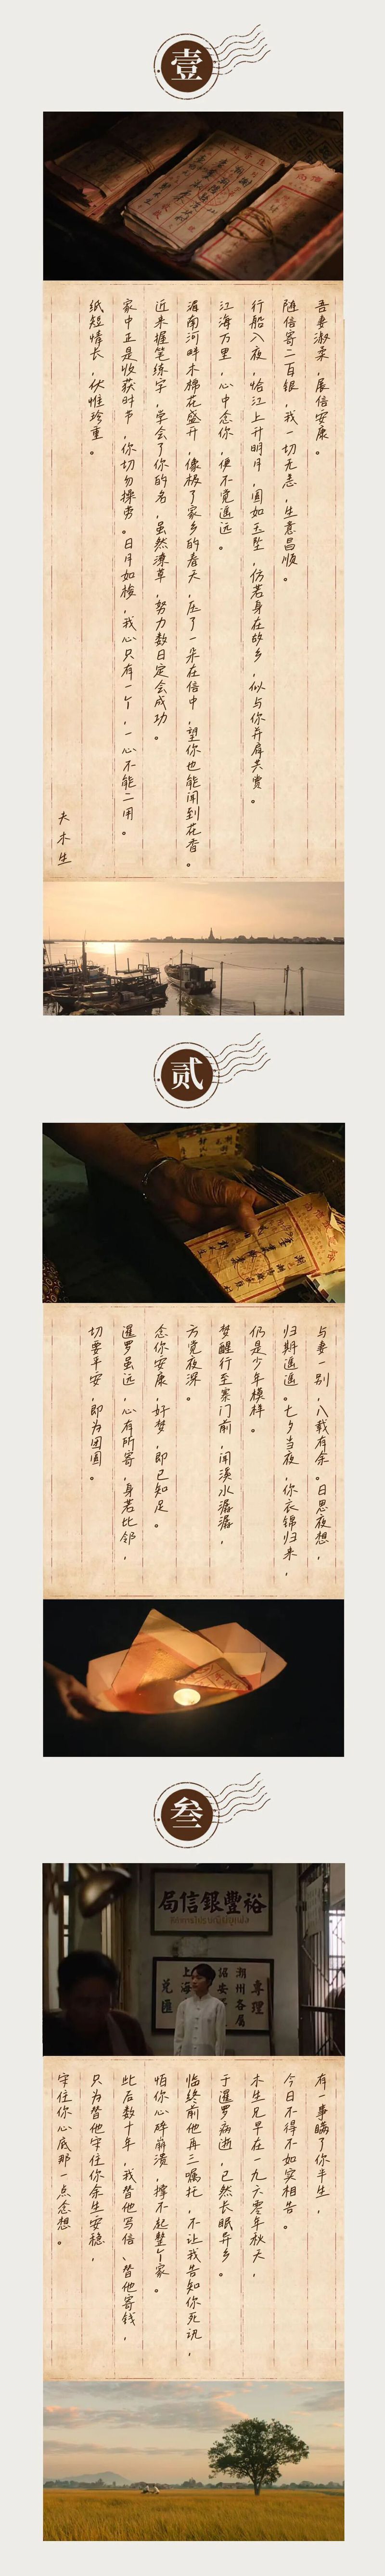 壹
吾妻淑柔，展信安康。
随信寄二百银，我一切无恙，生意昌顺。
行船入夜，恰江上升明月，圆如玉坠，仿若身在故乡，似与你并肩共赏。
江海万里，心中念你，便不觉遥远。
湄南河畔木棉花盛开，像极了家乡的春天，压了一朵在信中，望你也能闻到花香。
近来握笔练字，学会了你的名，虽然潦草，努力数日定会成功。
家中正是收获时节，你切勿操劳。日月如梭，我心只有一个，一心不能二用。
纸短情长，伏惟珍重。
夫木生
贰
与妻一别，八载有余。日思夜想，
归期遥遥。七夕当夜，你衣锦归来，
仍是少年模样。
梦醒行至寨门前，闻溪水潺潺，
方觉夜深。
念你安康，好梦，即已知足。
暹罗虽远，心有所寄，身若比邻，
切要平安，即为团圆。
叁
裕豐銀信局
專理
潮州各属
兑匯
有一事瞒了你半生，
今日不得不如实相告。
木生兄早在一九六零年秋天，
于暹罗病逝，已然长眠异乡。
临终前他再三嘱托，不让我告知你死讯，
怕你心碎崩溃，撑不起整个家。
此后数十年，我替他写信、替他寄钱，
只为替他守住你余生安稳，
守住你心底那一点念想。